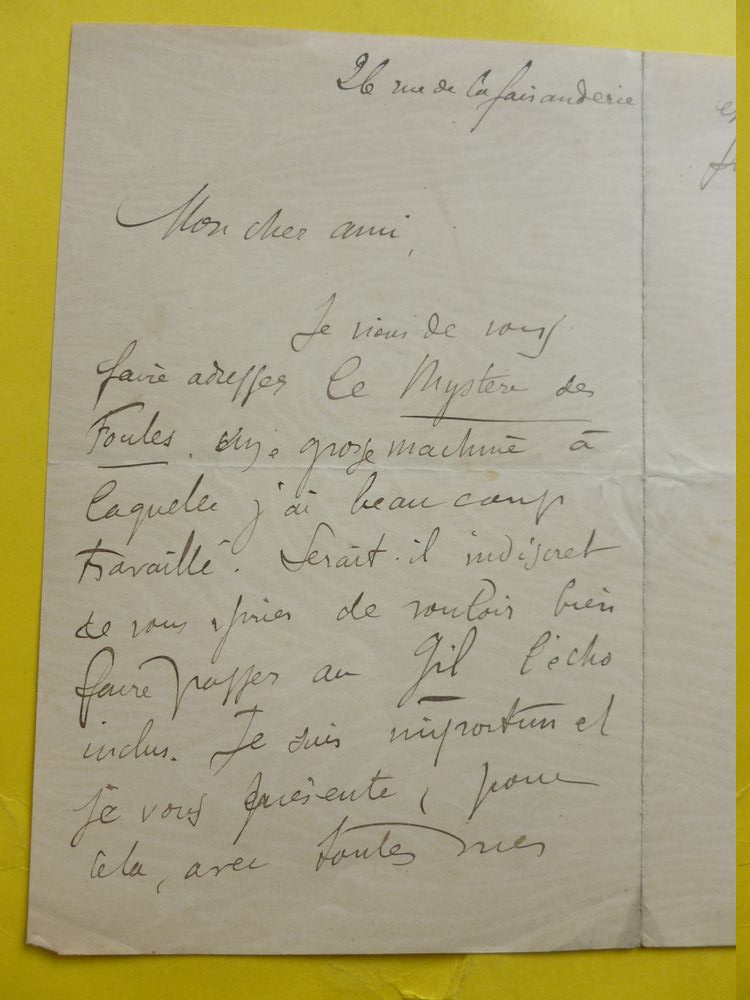 26 rue de la faisanderie
Mon cher ami,
Je viens de vous
faire adresser le Mystère des
Foules, une grosse machine à
laquelle j'ai beaucoup
travaillé. Serait-il indiscret
de vous prier de vouloir bien
faire passer au Gil l'écho
inclus. Je suis importun et
je vous présente, pour
cela, avec toutes mes